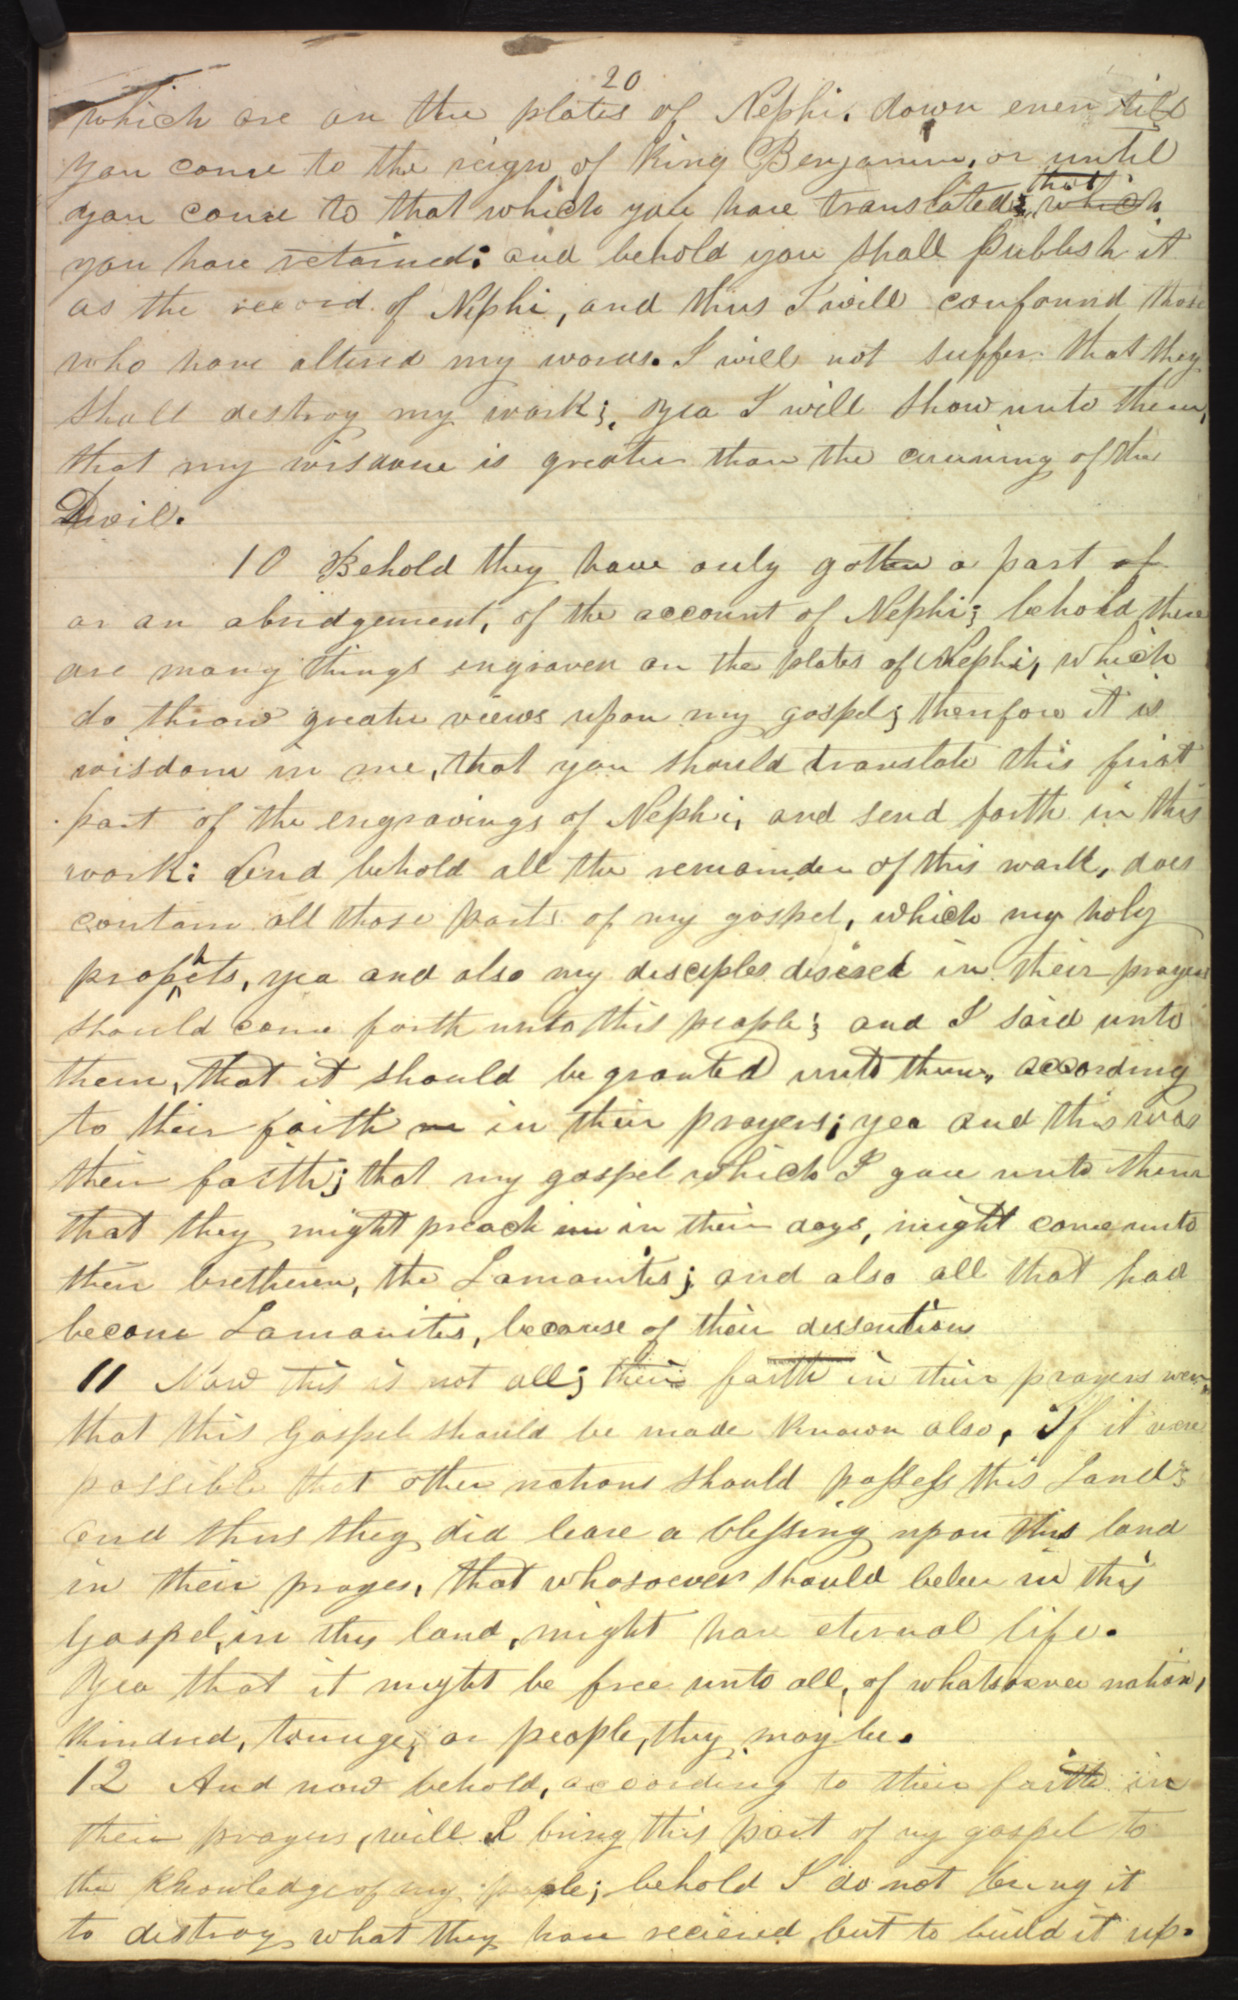 20
which are on the plates of Nephi, down even till
you come to the reign of King Benjamin, or until
you come to that which you have translated; which that
you have retained: and behold you shall publish it
as the record of Nephi, and thus I will confound those
who have altered my words. I will not suffer that they
shall destroy my work; yea I will show unto them,
that my wisdom is greater than the cunning of the
Devil.
10 Behold they have only gotten a part of
or an abridgement, of the account of Nephi; behold there
are many things engraven on the plates of Nephi, which
do throw greater views upon my gospel; therefore it is
wisdom in me, that you should translate this first
part of the engravings of Nephi, and send forth in this
work: And behold all the remainder of this work, does
contain all those parts of my gospel, which my holy
prophets, yea and also my disciples desired in their prayers
should come forth unto this people; and I said unto
them, that it should be granted unto them, according
to their faith in their prayers; yea and this was
their faith; that my gospel which I gave unto them
that they might preach in in their days, might come unto
their bretheren, the Lamanites; and also all that had
become Lamanites, because of their dissentions
11 Now this is not all; their faith in their prayers were
that this Gospel should be made known also, If it were
possible that other nations should possess this Land;
and thus they did leave a blessing upon this land
in their prayes, that whosoever should beleve in this
Gospel, in this land, might have eternal life.
Yea that it might be free unto all, of whatsoever nation,
kindred, tounge, or people, they may be.
12 And now behold, according to their faith in
their prayers, will I bring this part of my gospel to
the knowledge of my people; behold I do not bring it
to destroy what they have recieved but to build it up.